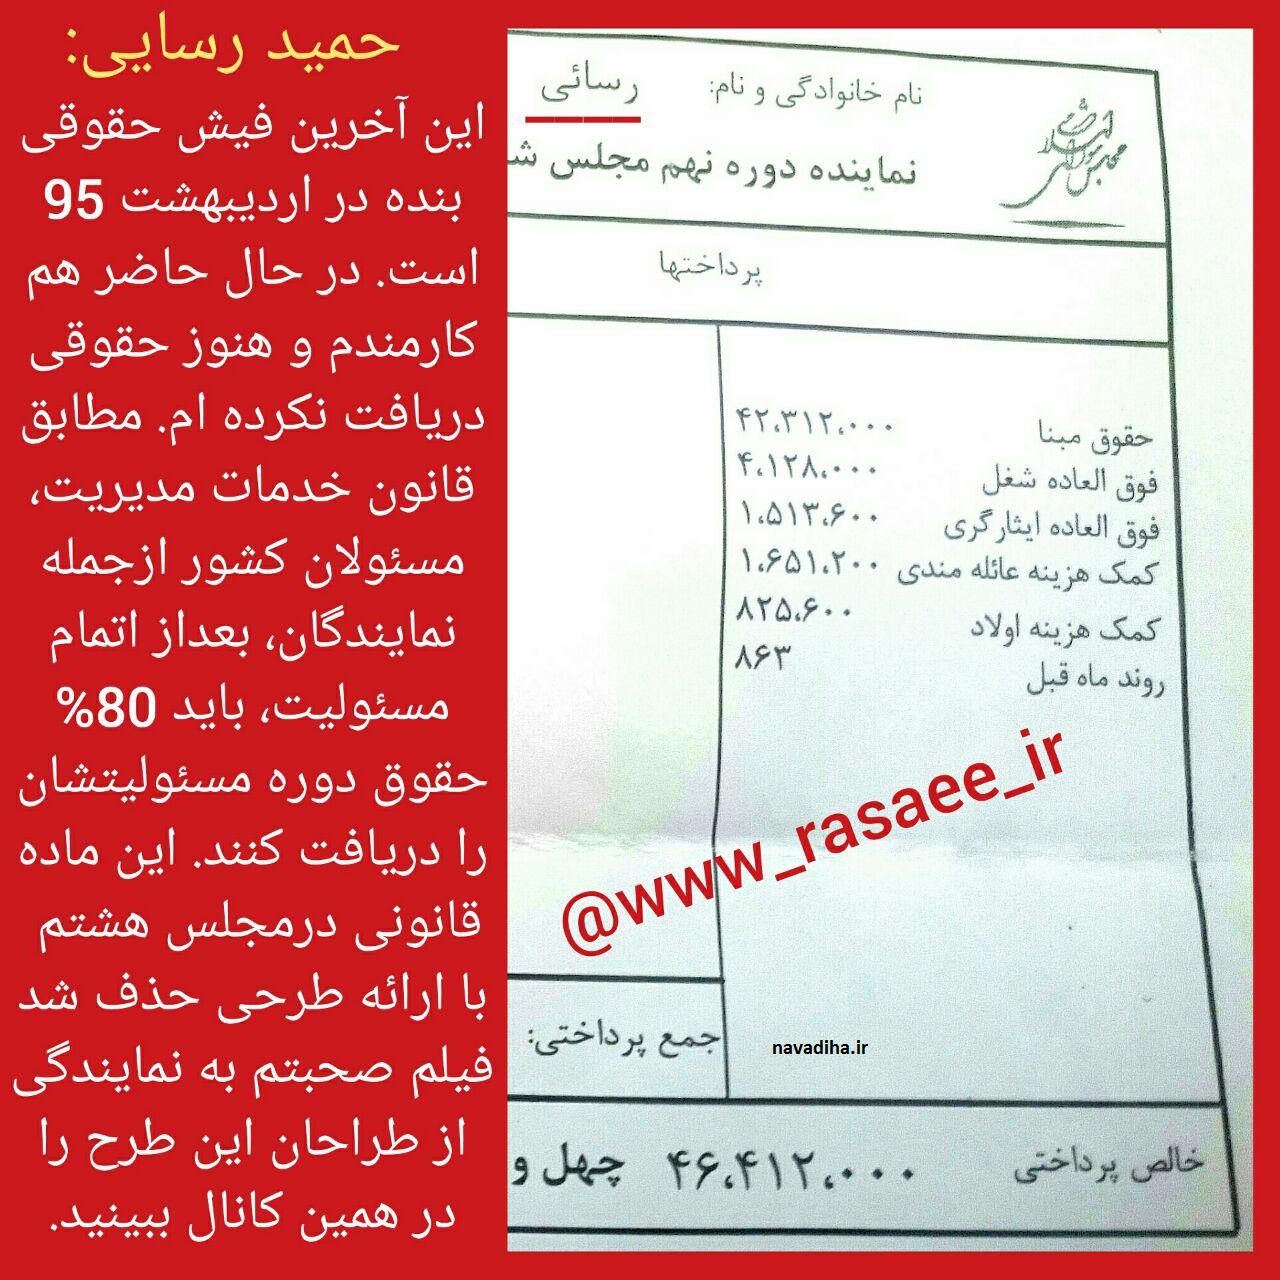 حمید رسایی:
این آخرین فیش حقوقی
بنده در اردیبهشت 95
است. در حال حاضر هم
کارمندم و هنوز حقوقی
دریافت نکرده ام. مطابق
قانون خدمات مدیریت،
مسئولان کشور ازجمله
نمایندگان، بعداز اتمام
مسئولیت، باید 80%
حقوق دوره مسئولیتشان
را دریافت کنند. این ماده
قانونی درمجلس هشتم
با ارائه طرحی حذف شد
فیلم صحبتم به نمایندگی
از طراحان این طرح را
در همین کانال ببینید.
مجلس شورای اسلامی
نام خانوادگی و نام: رسائی
نماینده دوره نهم مجلس ش
پرداختها
حقوق مبنا ۴۲،۳۱۲،۰۰۰
فوق العاده شغل ۴،۱۲۸،۰۰۰
فوق العاده ایثارگری ۱،۵۱۳،۶۰۰
کمک هزینه عائله مندی ۱،۶۵۱،۲۰۰
کمک هزینه اولاد ۸۲۵،۶۰۰
روند ماه قبل ۸۶۳
@www_rasaee_ir
جمع پرداختی:
navadiha.ir
خالص پرداختی ۴۶،۴۱۲،۰۰۰ چهل و